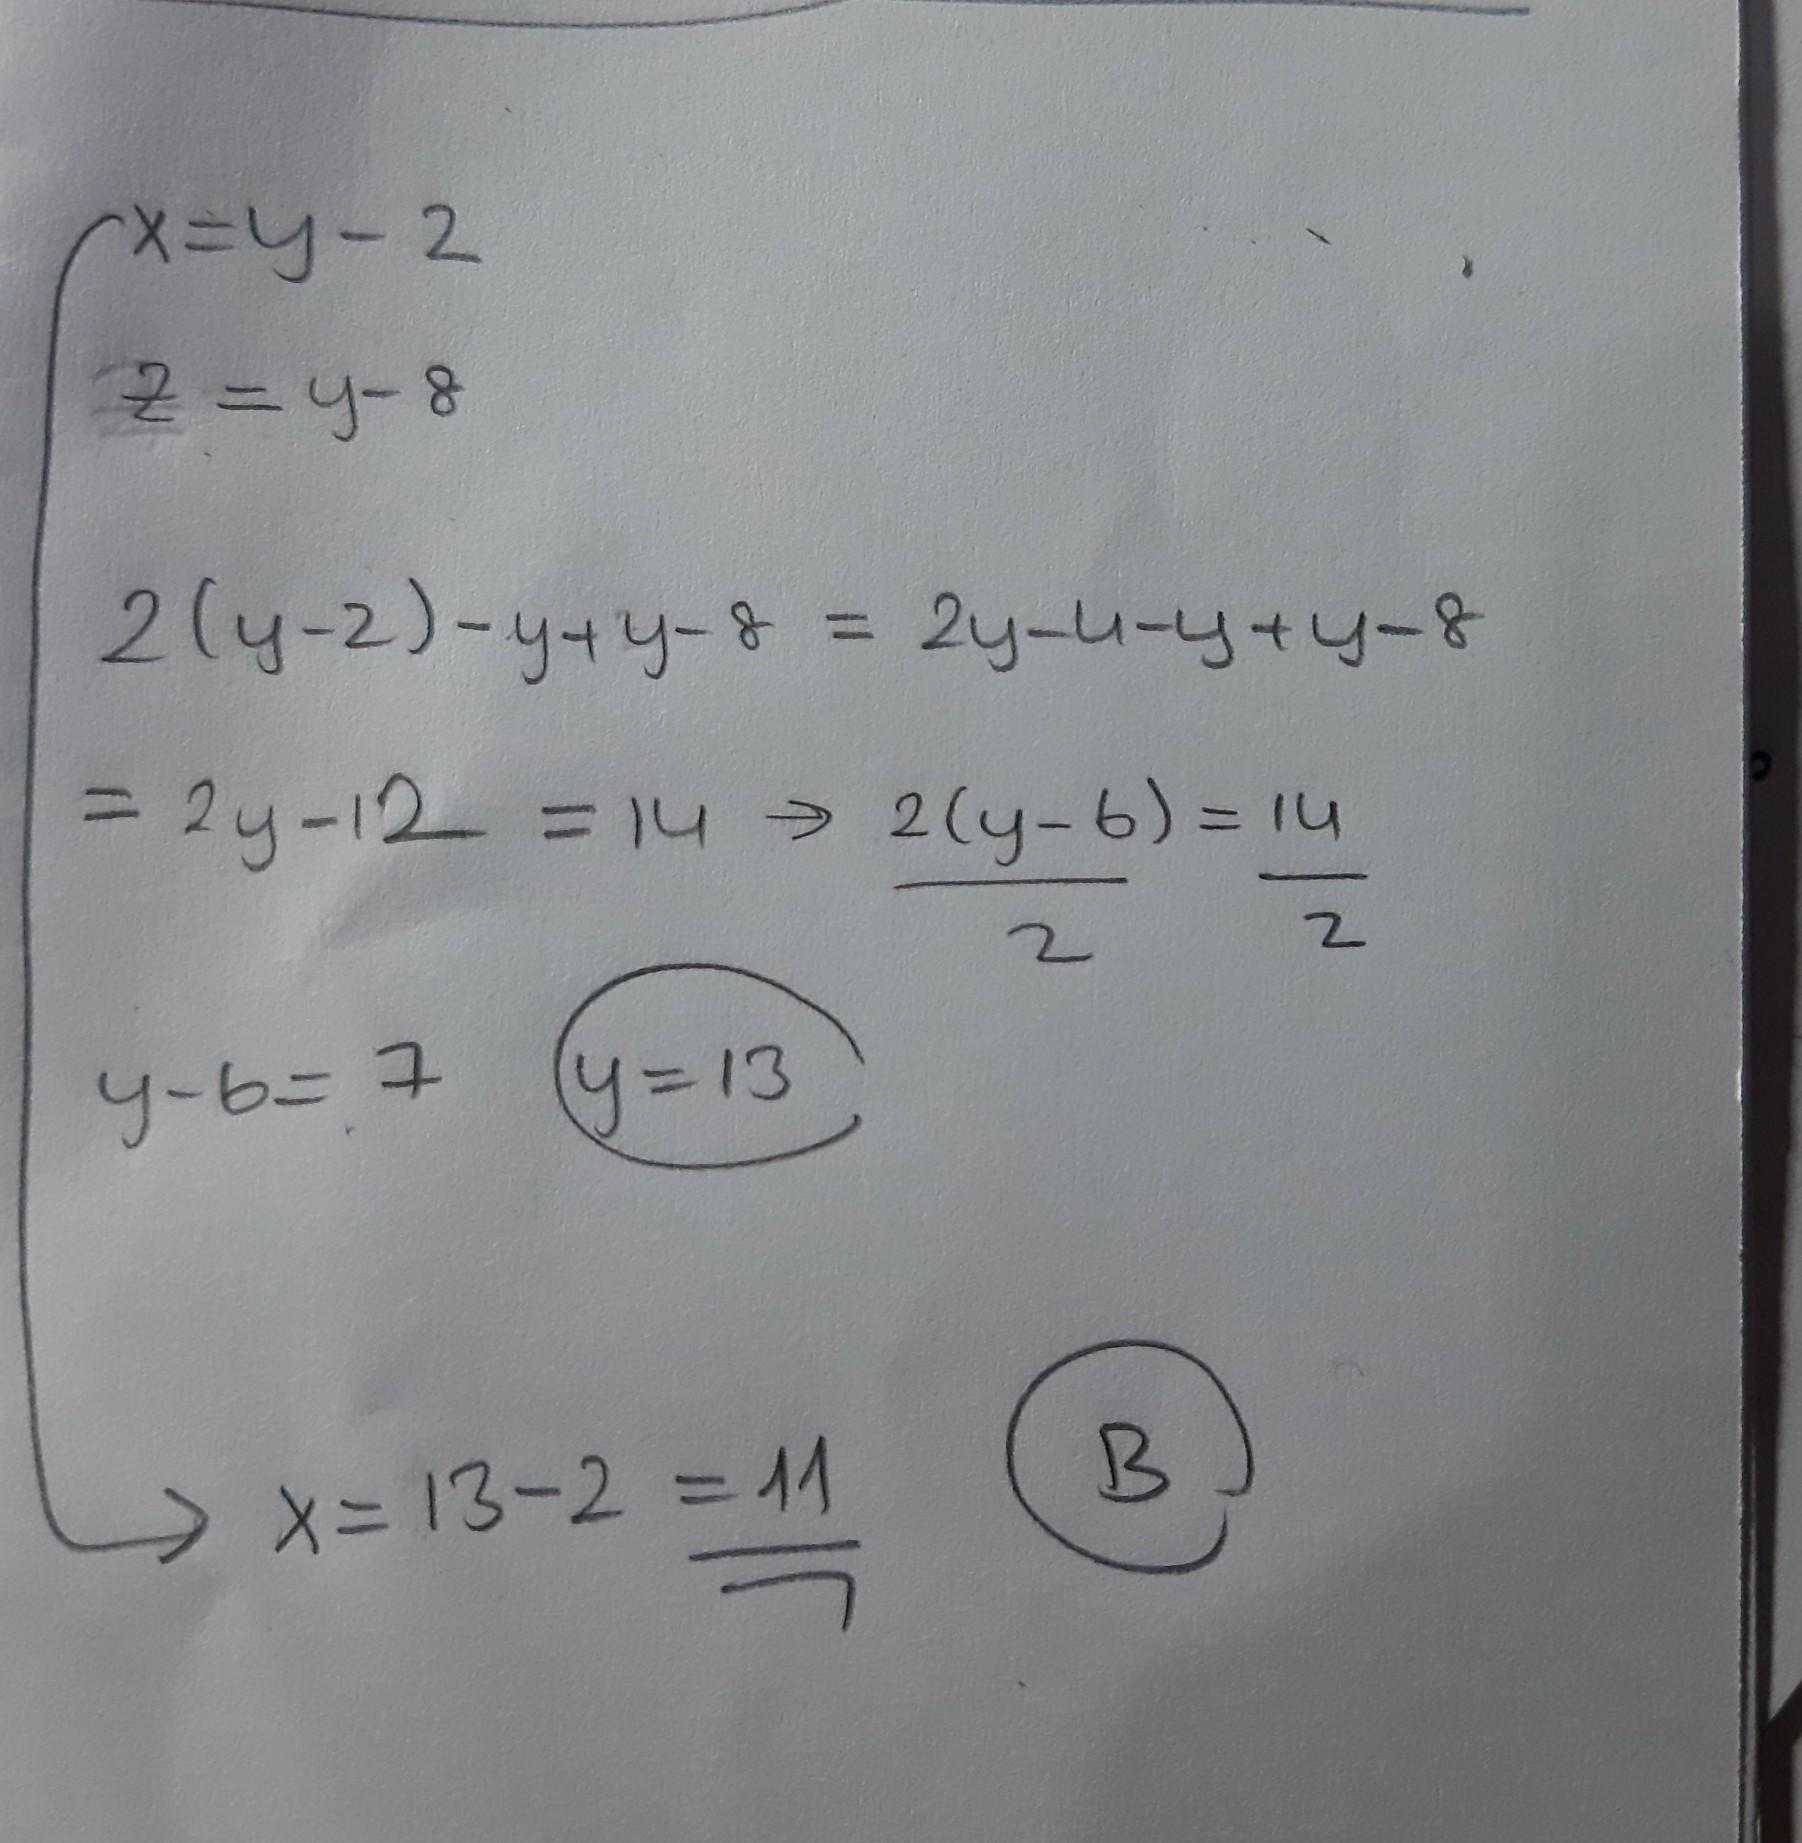 x=y-2
z=y-8
2(y-2)-y+y-8 = 2y-4-y+y-8
= 2y-12 = 14 → 2(y-6)/2 = 14/2
y-6=7 y=13
→ x=13-2 =11 B